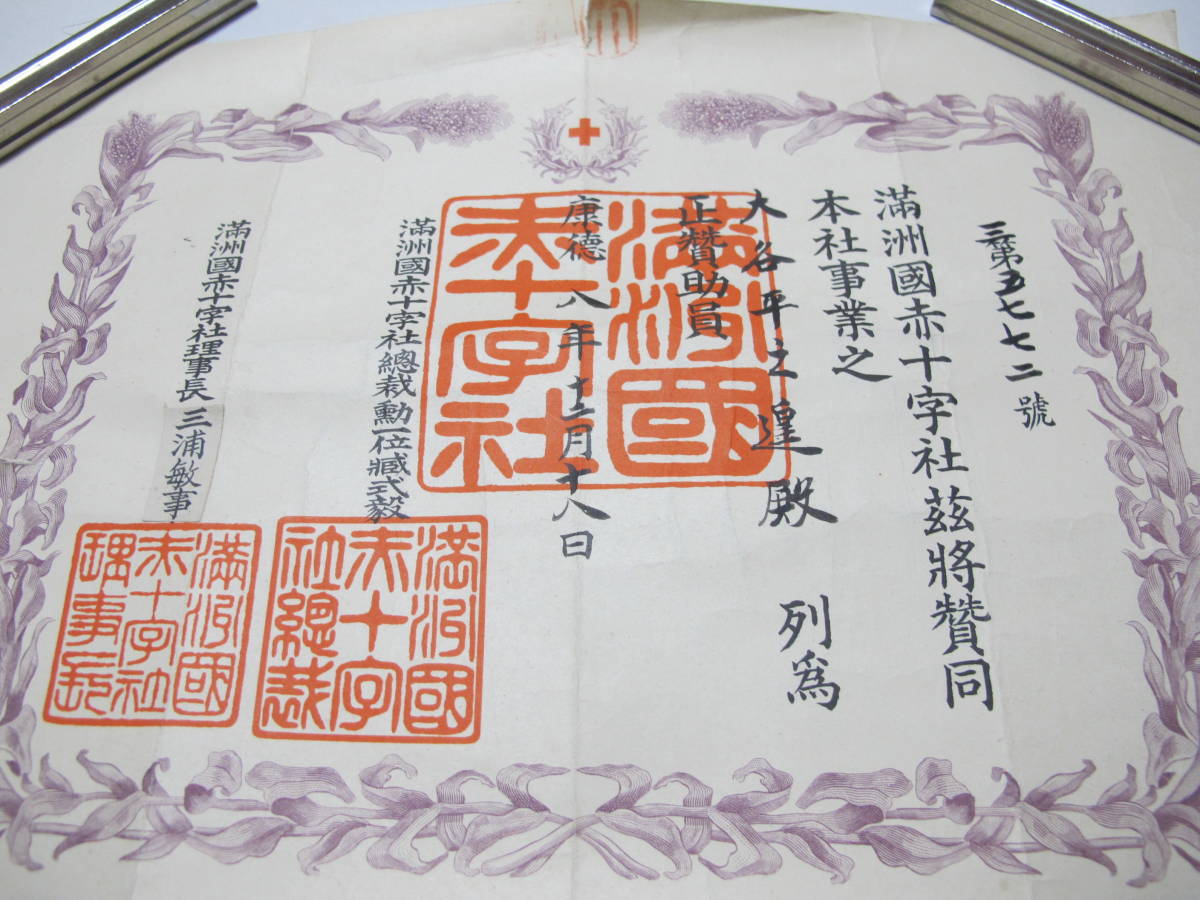 三第五七七二號
滿洲國赤十字社茲將贊同
本社事業之
大谷平之遑殿 列為
正贊助員
康德八年十二月十八日
滿洲國赤十字社總裁勳一位臧式毅
滿洲國赤十字社理事長三浦敏事
滿洲國
赤十字社
滿洲國
赤十字
社總裁
滿洲國
赤十字社
理事長